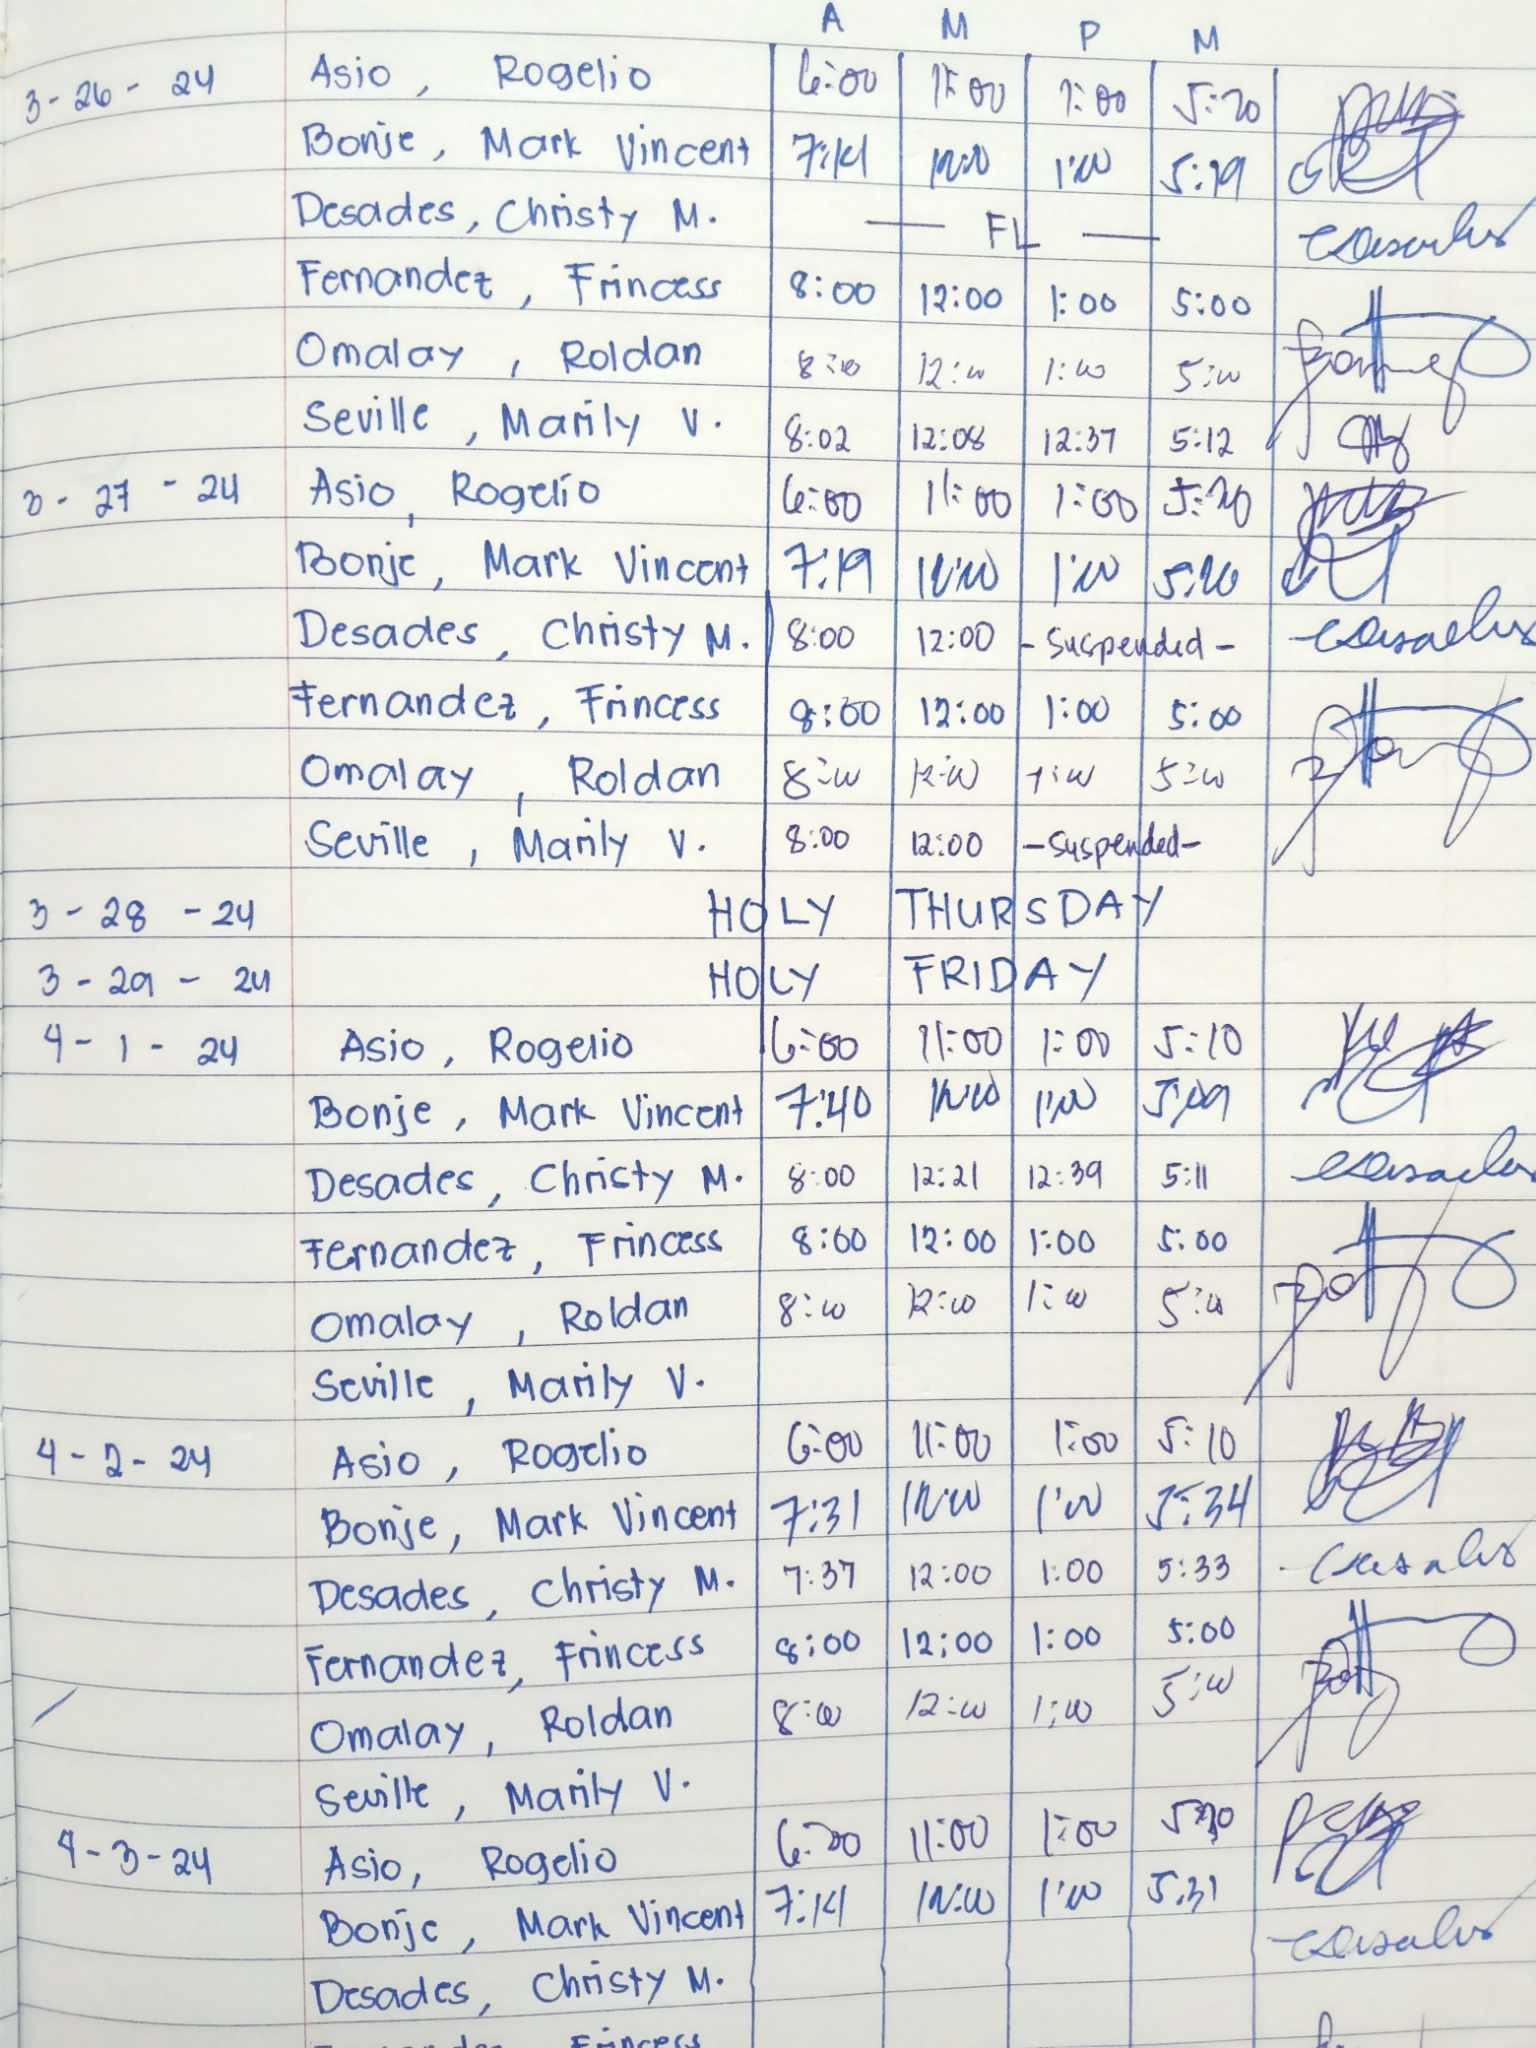 A M P M
3-26-24 Asio, Rogelio 6:00 11:00 1:00 5:20
Bonje, Mark Vincent 7:14 12:00 1:00 5:19
Desades, Christy M. — FL —
Fernandez, Frincess 8:00 12:00 1:00 5:00
Omalay, Roldan 8:00 12:00 1:00 5:00
Seville, Marily V. 8:02 12:08 12:37 5:12
3-27-24 Asio, Rogelio 6:00 11:00 1:00 5:20
Bonje, Mark Vincent 7:19 12:00 1:00 5:20
Desades, Christy M. 8:00 12:00 -Suspended-
Fernandez, Frincess 8:00 12:00 1:00 5:00
Omalay, Roldan 8:00 12:00 1:00 5:00
Seville, Marily V. 8:00 12:00 -Suspended-
3-28-24 HOLY THURSDAY
3-29-24 HOLY FRIDAY
4-1-24 Asio, Rogelio 6:00 11:00 1:00 5:10
Bonje, Mark Vincent 7:40 12:00 1:00 5:09
Desades, Christy M. 8:00 12:21 12:39 5:11
Fernandez, Frincess 8:00 12:00 1:00 5:00
Omalay, Roldan 8:00 12:00 1:00 5:00
Seville, Marily V.
4-2-24 Asio, Rogelio 6:00 11:00 1:00 5:10
Bonje, Mark Vincent 7:31 12:00 1:00 5:34
Desades, Christy M. 7:37 12:00 1:00 5:33
Fernandez, Frincess 8:00 12:00 1:00 5:00
Omalay, Roldan 8:00 12:00 1:00 5:00
Seville, Marily V.
4-3-24 Asio, Rogelio 11:00 1:00
Bonje, Mark Vincent 7:14 12:00 1:00 5:31
Desades, Christy M.
Fernandez, Frincess